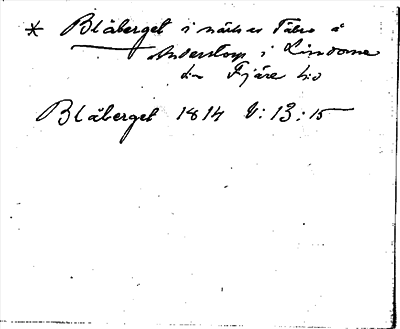 * Blåberget i närh av Tåbro å
Anderstorp i Lindome
Fjäre hd
Blåberget 1814 V:13:15